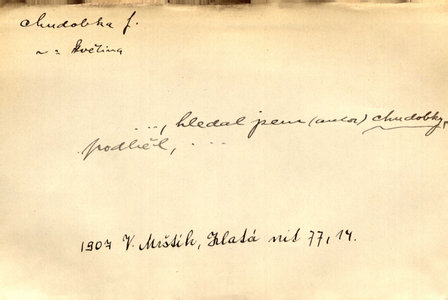 chudobka f.
~ : květina
..., hledal jsem (autor) chudobky,
podběl, ...
1907 V. Mrštík, Zlatá nit 77, 14.